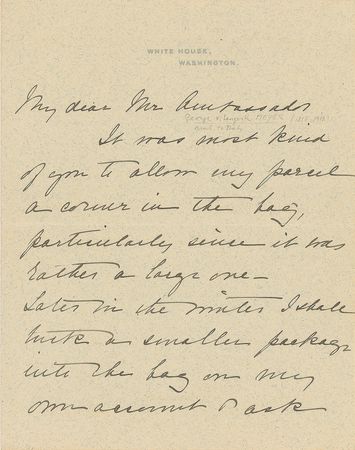 WHITE HOUSE,
WASHINGTON.
My dear Mr Ambassador
It was most kind
of you to allow my parcel
a corner in the bag,
particularly since it was
rather a large one—
Later in the winter I shall
tuck a smaller package
into the bag on my
own account & ask